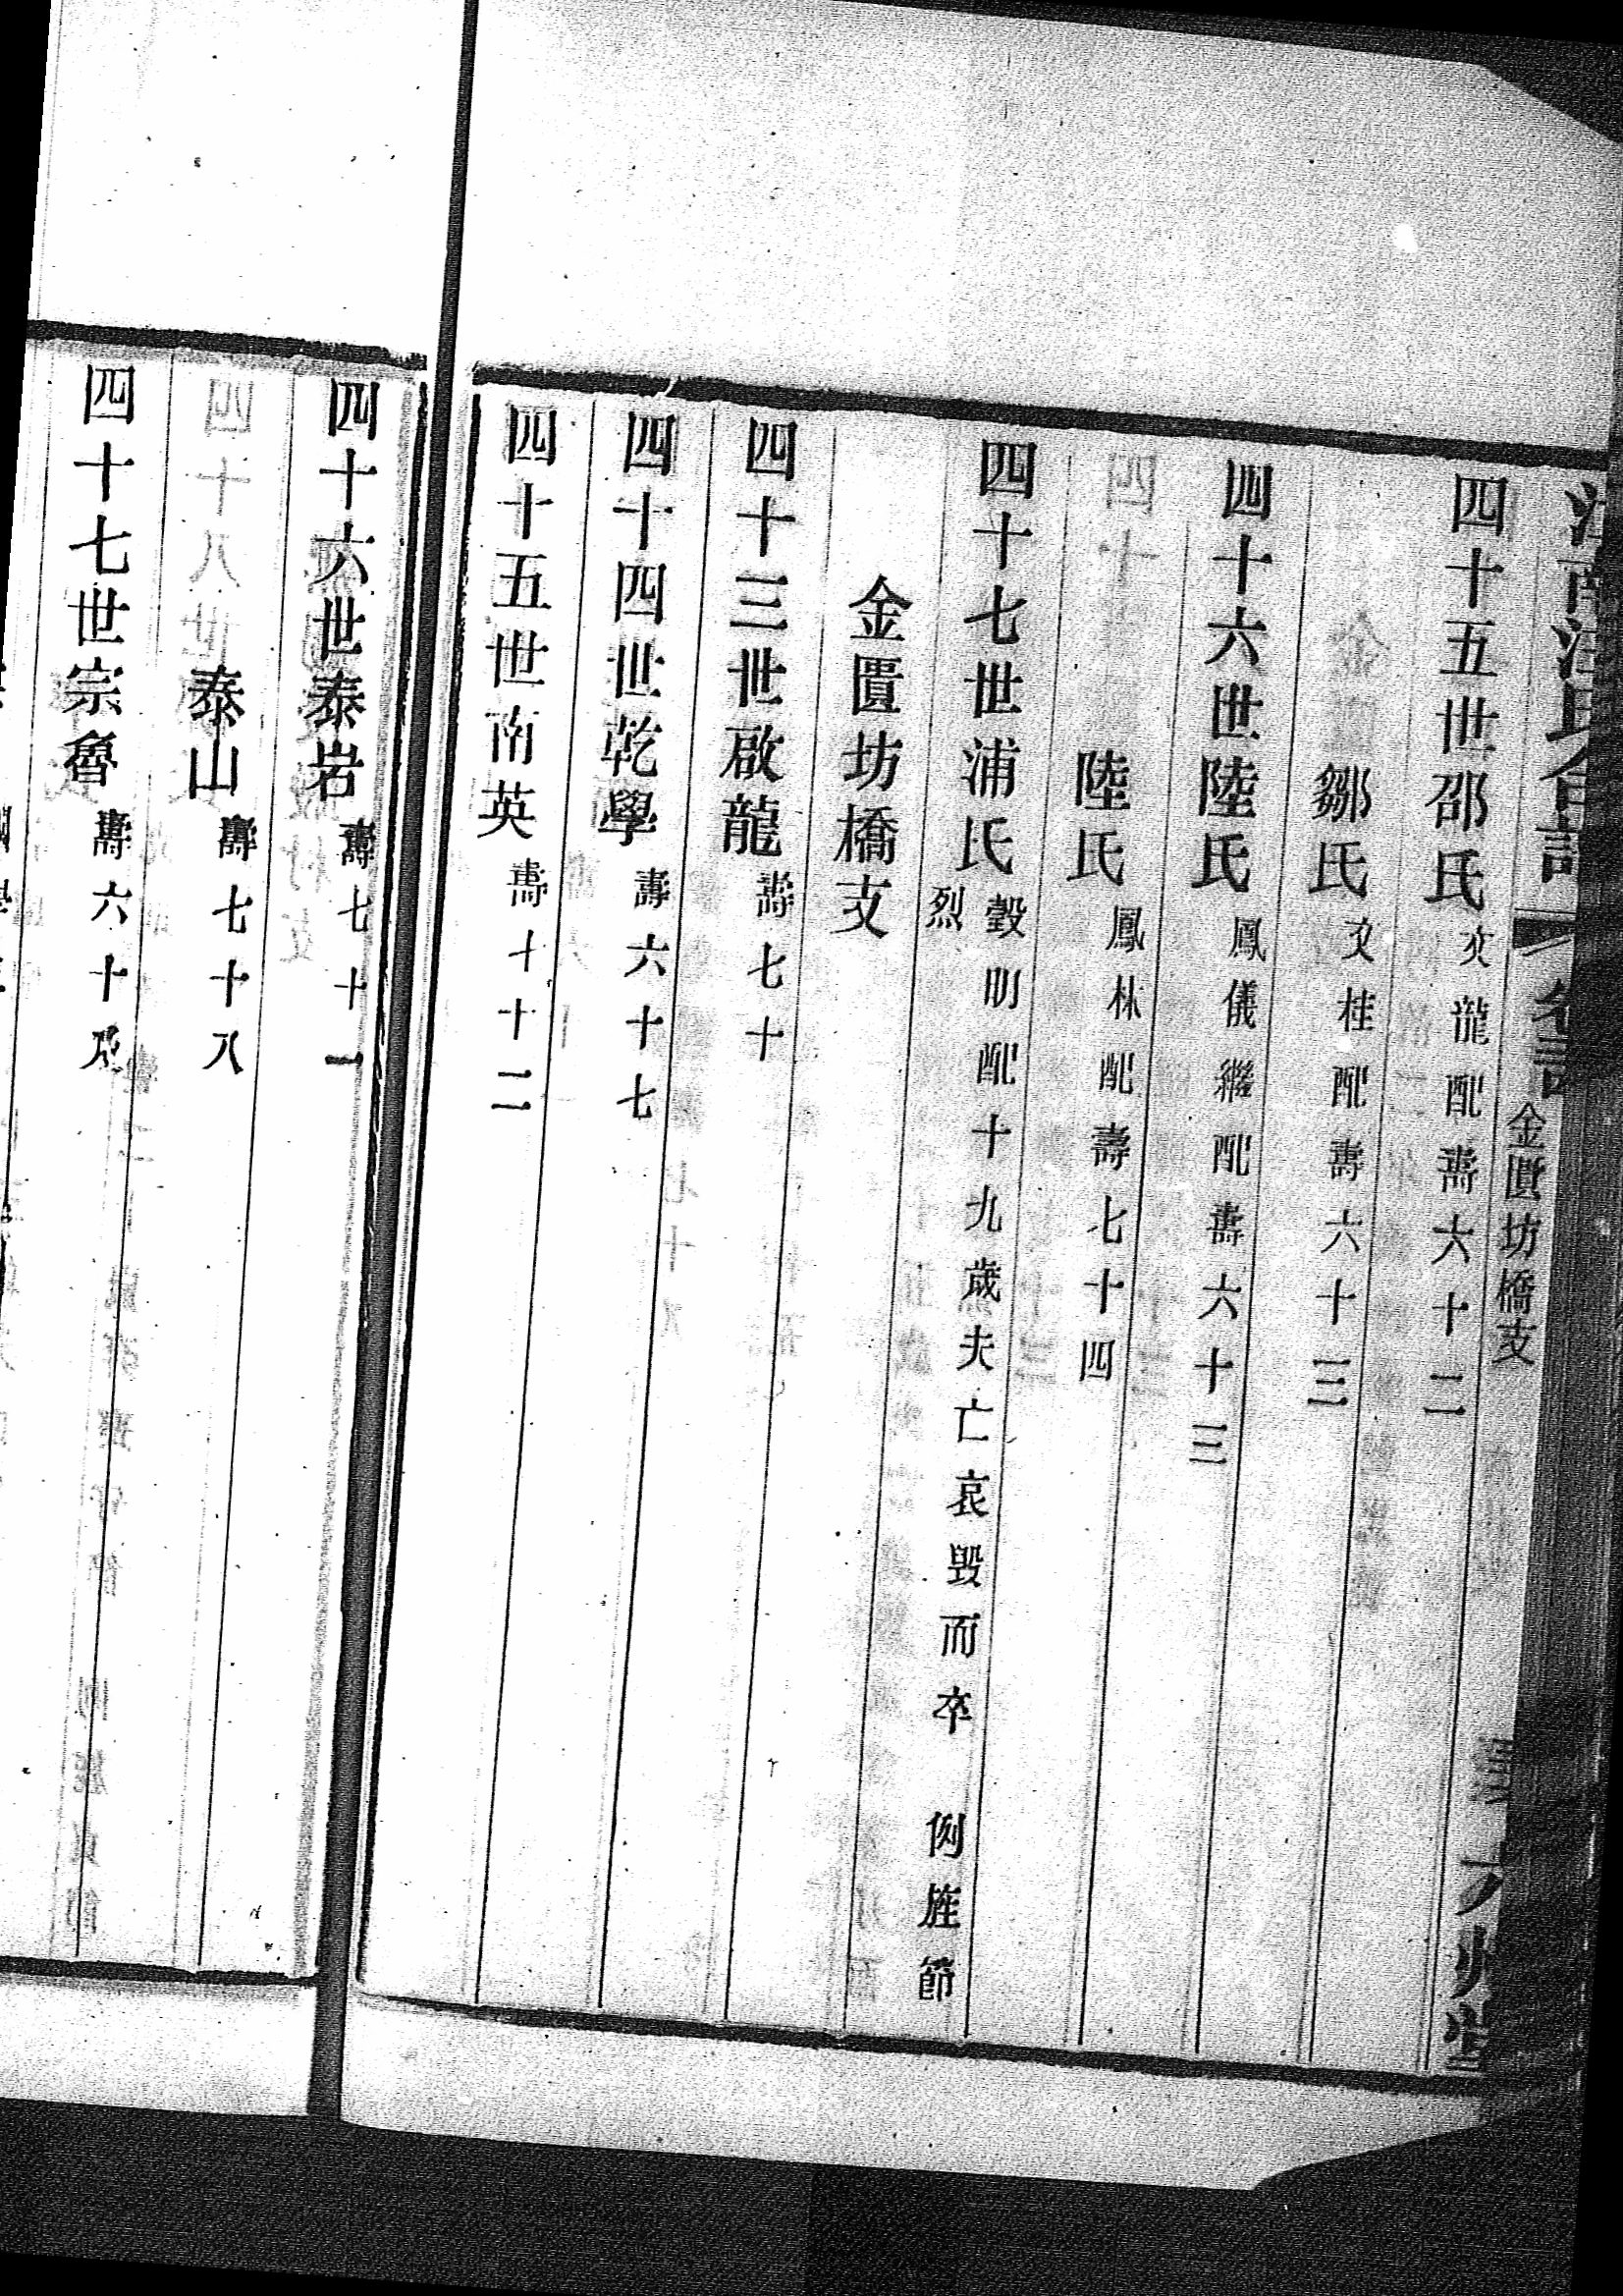 金匱坊橋支
四十五世邵氏 文龍配壽六十二
鄒氏 文桂配壽六十三
四十六世陸氏 鳳儀繼配壽六十三
陸氏 鳳林配壽七十四
四十七世浦氏 毂明配十九歲夫亡哀毁而卒 例旌節烈
金匱坊橋支
四十三世啟龍 壽七十
四十四世乾學 壽六十七
四十五世南英 壽十二
四十六世泰岩 壽七十一
泰山 壽七十八
四十七世宗魯 壽六十